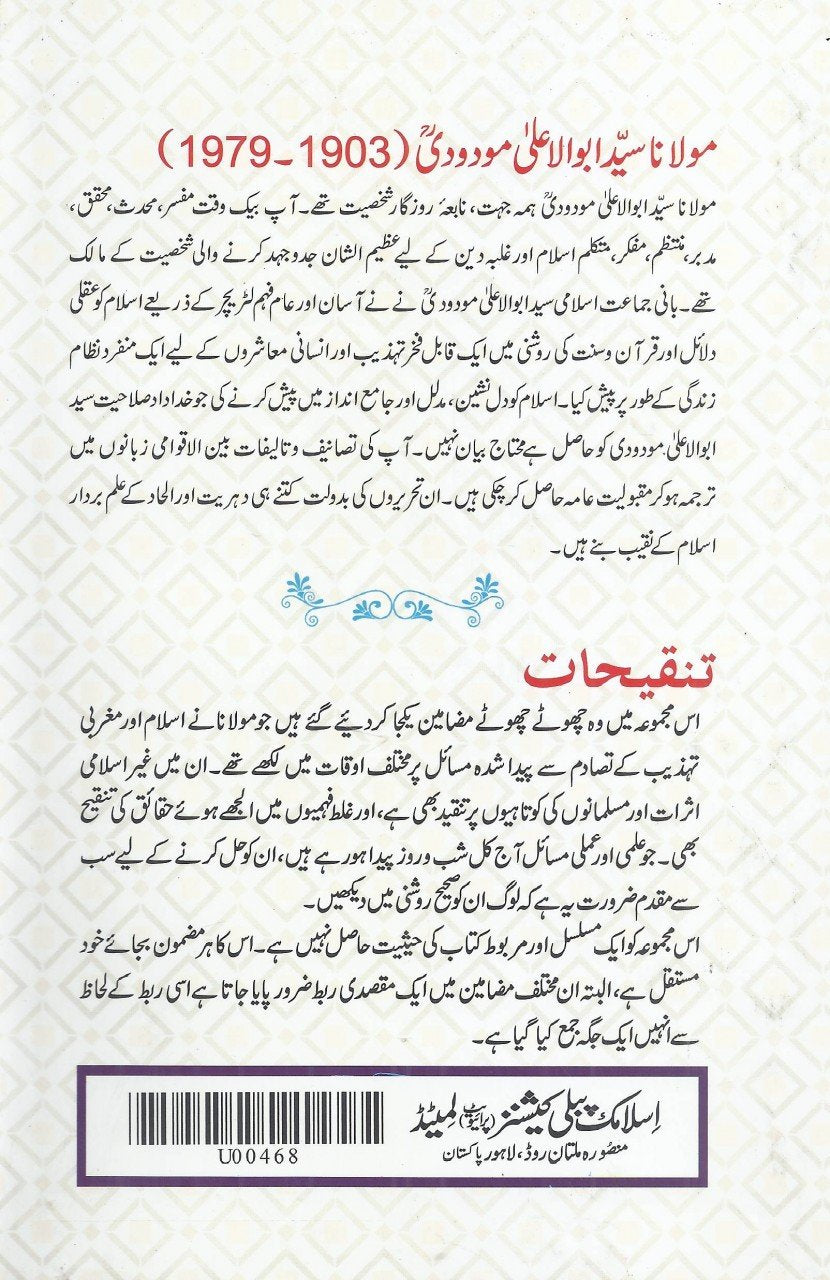 مولانا سیّد ابوالاعلیٰ مودودیؒ (1903۔1979)
مولانا سیّد ابوالاعلیٰ مودودیؒ ہمہ جہت، نابغۂ روزگار شخصیت تھے۔ آپ بیک وقت مفسر، محدث، محقق،
مدبر، منتظم، مفکر، متکلم اسلام اور غلبہ دین کے لیے عظیم الشان جدوجہد کرنے والی شخصیت کے مالک
تھے۔ بانی جماعت اسلامی سید ابوالاعلیٰ مودودیؒ نے نے آسان اور عام فہم لٹریچر کے ذریعے اسلام کو عقلی
دلائل اور قرآن و سنت کی روشنی میں ایک قابل فخر تہذیب اور انسانی معاشروں کے لیے ایک منفرد نظام
زندگی کے طور پر پیش کیا۔ اسلام کو دل نشین، مدلل اور جامع انداز میں پیش کرنے کی جو خداداد صلاحیت سید
ابوالاعلیٰ مودودی کو حاصل ہے محتاج بیان نہیں۔ آپ کی تصانیف و تالیفات بین الاقوامی زبانوں میں
ترجمہ ہو کر مقبولیت عامہ حاصل کر چکی ہیں۔ ان تحریروں کی بدولت کتنے ہی دہریت اور الحاد کے علم بردار
اسلام کے نقیب بنے ہیں۔
تنقیحات
اس مجموعہ میں وہ چھوٹے چھوٹے مضامین یکجا کر دیئے گئے ہیں جو مولانا نے اسلام اور مغربی
تہذیب کے تصادم سے پیدا شدہ مسائل پر مختلف اوقات میں لکھے تھے۔ ان میں غیر اسلامی
اثرات اور مسلمانوں کی کوتاہیوں پر تنقید بھی ہے، اور غلط فہمیوں میں الجھے ہوئے حقائق کی تنقیح
بھی۔ جو علمی اور عملی مسائل آج کل شب و روز پیدا ہو رہے ہیں، ان کو حل کرنے کے لیے سب
سے مقدم ضرورت یہ ہے کہ لوگ ان کو صحیح روشنی میں دیکھیں۔
اس مجموعہ کو ایک مسلسل اور مربوط کتاب کی حیثیت حاصل نہیں ہے۔ اس کا ہر مضمون بجائے خود
مستقل ہے، البتہ ان مختلف مضامین میں ایک مقصدی ربط ضرور پایا جاتا ہے اسی ربط کے لحاظ
سے انہیں ایک جگہ جمع کیا گیا ہے۔
اسلامک پبلی کیشنز (پرائیویٹ) لمیٹڈ
منصورہ ملتان روڈ، لاہور پاکستان
U00468